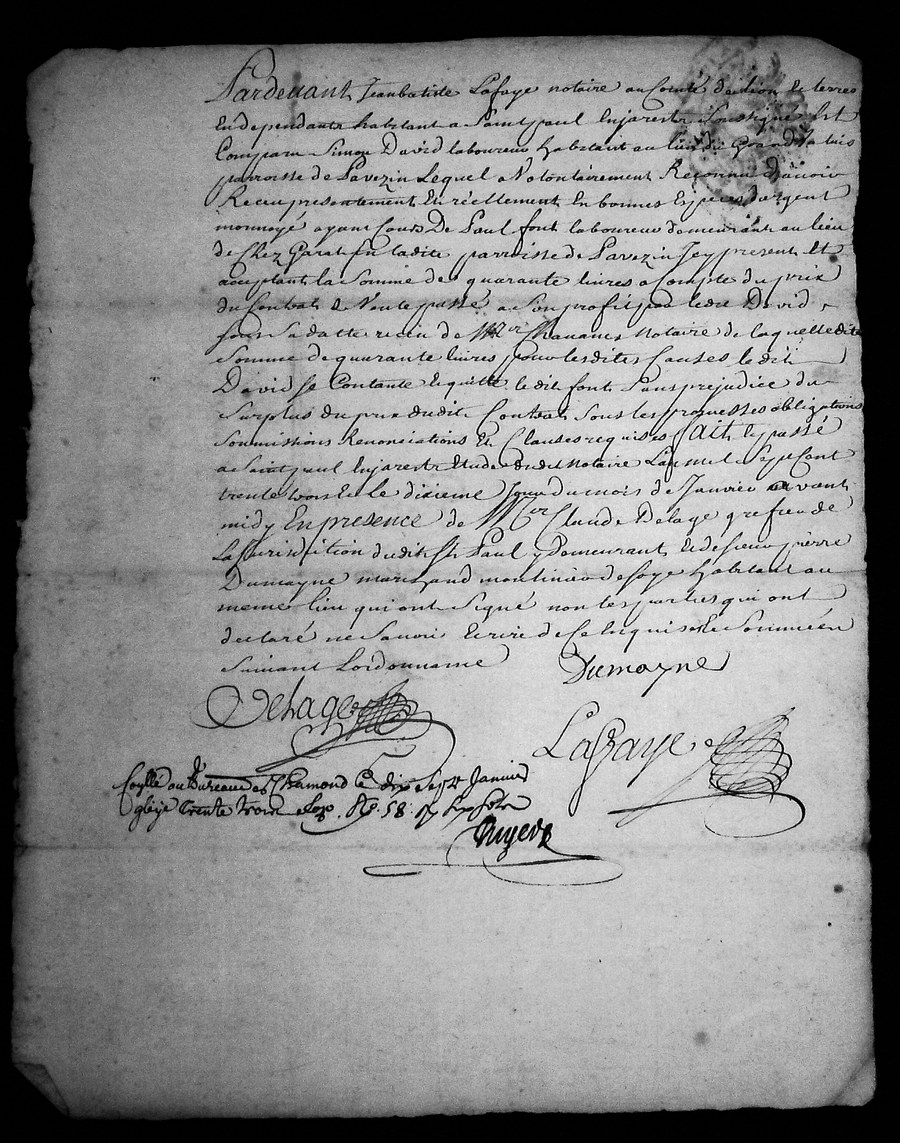 Pardevant Jeanbatiste Lafaye notaire au Comté de lion et terres
Independante habitant a Saint paul Enjarestz Soussigné Est
Comparu Simon David laboureur habitant au lieu du Grand
parroisse de Pavezin Lequel a Volontairement Reconnu D'avoir
Receu presentement En réellement En bonnes Espèces d'argent
monnoyé ayant Cours De Paul font laboureur demeurant au lieu
de Chez Garat En ladite parroisse de Pavezin Icy present Et
acceptant la Somme de quarante livres a Compte du prix
du Contrat de Vente passé a Son profit par ledit David
sous Sa datte receu de Mer Chavanes Notaire de laquelle dite
Somme de quarante livres pour lesdites Causes le dit
David Se Contante Et quitte le dit font Sans prejudice du
Surplus du prix dudit Contrat Sous les promesses obligations
Soumissions Renonciations Et Clauses requises fait Et passé
a Saint paul Enjarestz Etude dudit Notaire Lan mil Sept Cent
trente trois Et Le dixieme Jour du mois de Janvier avant
midy En presence de Mer Claude Delage grefier de
La Jurisdition dudit St Paul y Demeurant Et de sieur pierre
Dumayne marchand moulinier de soye habitant au
meme lieu qui ont Signé non les parties qui ont
declaré ne Savoir Ecrire de Ce Enquis Et Sommées
Suivant Lordonnance
Dumayne
Delage
Lafaye
Coñllé au Bureau de St Chamond le dix Sept Janvier
trente trois fo. 58